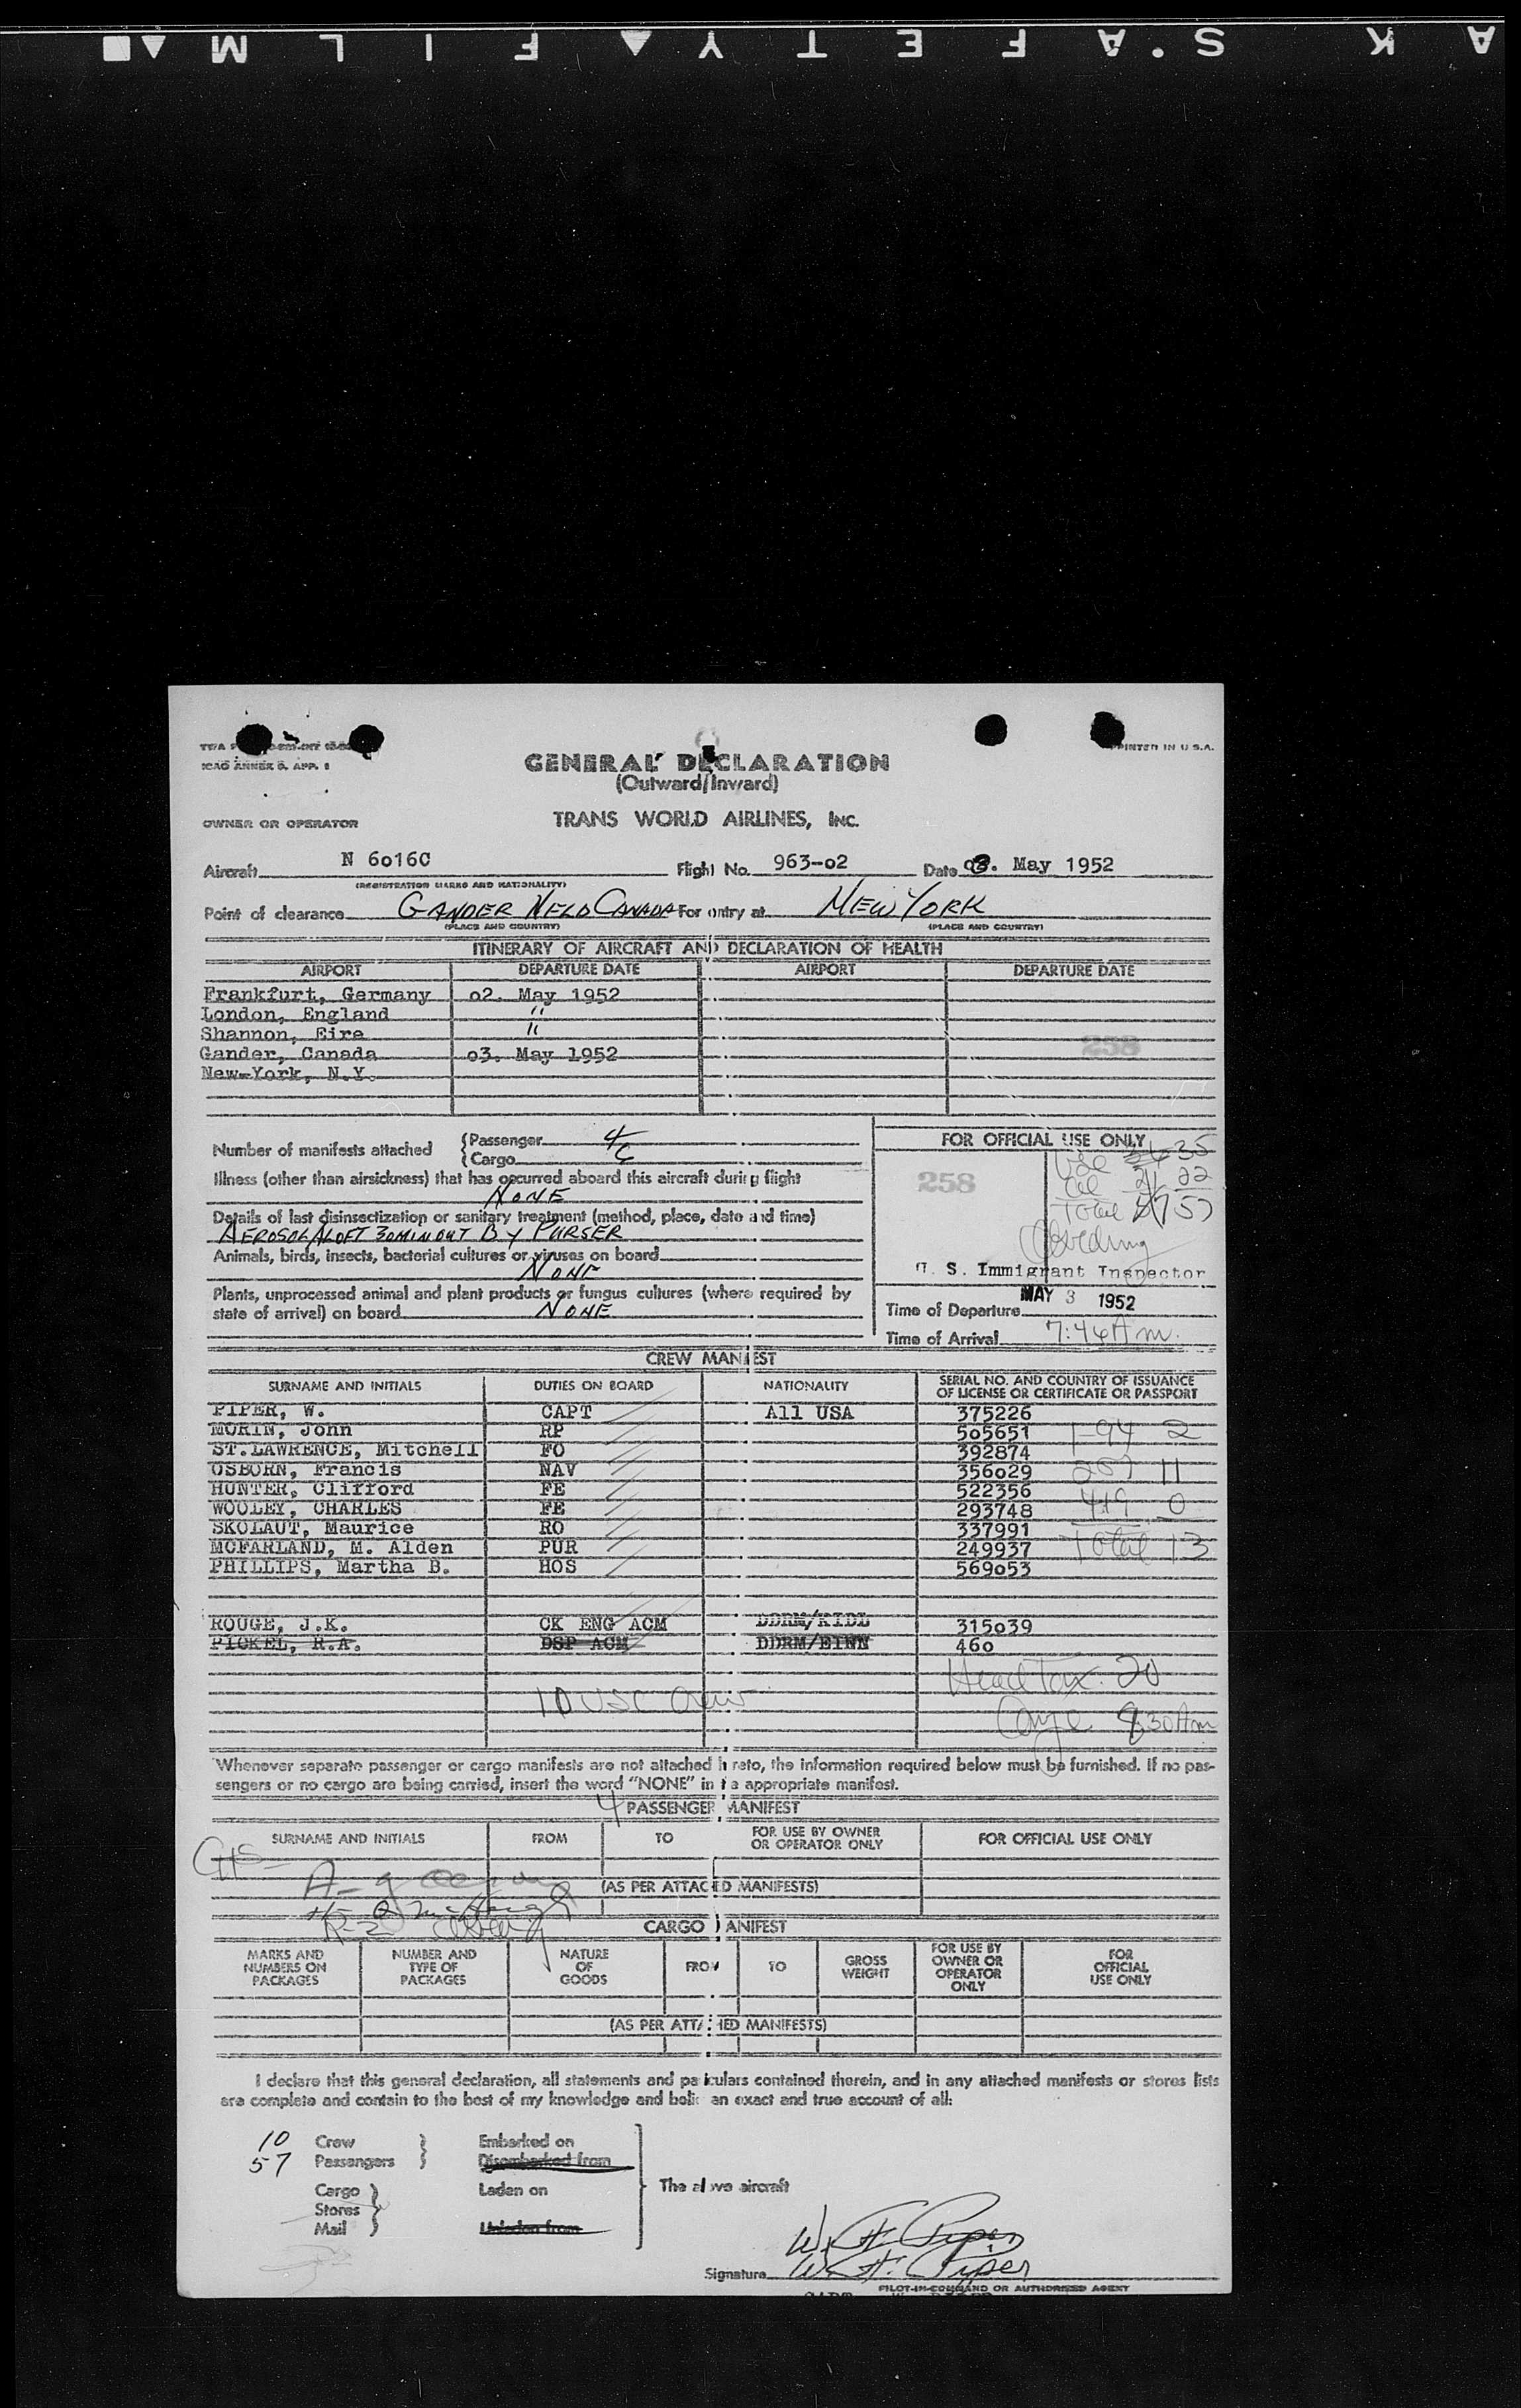 A K S.A F E T Y ▲ F I L M
ICAO ANNEX 9. APP. 1
PRINTED IN U.S.A.
GENERAL DECLARATION
(Outward/Inward)
OWNER OR OPERATOR TRANS WORLD AIRLINES, INC.
Aircraft N 6016C Flight No. 963-02 Date 03. May 1952
(REGISTRATION MARKS AND NATIONALITY)
Point of clearance GANDER NFLD CANADA For entry at NEW YORK
(PLACE AND COUNTRY) (PLACE AND COUNTRY)
ITINERARY OF AIRCRAFT AND DECLARATION OF HEALTH
AIRPORT DEPARTURE DATE AIRPORT DEPARTURE DATE
Frankfurt, Germany 02. May 1952
London, England "
Shannon, Eire "
Gander, Canada 03. May 1952 258
New-York, N.Y.
Number of manifests attached {Passenger 4
{Cargo 6
FOR OFFICIAL USE ONLY
258
USC 35
22
Total 57
Illness (other than airsickness) that has occurred aboard this aircraft during flight
NONE
Details of last disinsectization or sanitary treatment (method, place, date and time)
AEROSOL ALOFT 30 MIN OUT BY PURSER
Animals, birds, insects, bacterial cultures or viruses on board
NONE
U. S. Immigrant Inspector
Plants, unprocessed animal and plant products or fungus cultures (where required by
state of arrival) on board NONE
MAY 3 1952
Time of Departure
Time of Arrival 7:46 Am.
CREW MANIFEST
SURNAME AND INITIALS DUTIES ON BOARD NATIONALITY SERIAL NO. AND COUNTRY OF ISSUANCE
OF LICENSE OR CERTIFICATE OR PASSPORT
PIPER, W. CAPT All USA 375226
MORIN, John RP 505651 I-94 2
ST.LAWRENCE, Mitchell FO 392874
OSBORN, Francis NAV 356029 257 11
HUNTER, Clifford FE 522356
WOOLEY, CHARLES FE 293748 419 0
SKOLAUT, Maurice RO 337991
MCFARLAND, M. Alden PUR 249937 Total 13
PHILLIPS, Martha B. HOS 569053
ROUGE, J.K. CK ENG ACM DDRM/KIDL 315039
PICKEL, R.A. DSP ACM DDRM/EINN 460
Head Tax 20
10 USC Crew
8:30 Am
Whenever separate passenger or cargo manifests are not attached hereto, the information required below must be furnished. If no pas-
sengers or no cargo are being carried, insert the word "NONE" in the appropriate manifest.
4 PASSENGER MANIFEST
SURNAME AND INITIALS FROM TO FOR USE BY OWNER
OR OPERATOR ONLY FOR OFFICIAL USE ONLY
(AS PER ATTACHED MANIFESTS)
CARGO MANIFEST
MARKS AND
NUMBERS ON
PACKAGES NUMBER AND
TYPE OF
PACKAGES NATURE
OF
GOODS FROM TO GROSS
WEIGHT FOR USE BY
OWNER OR
OPERATOR
ONLY FOR
OFFICIAL
USE ONLY
(AS PER ATTACHED MANIFESTS)
I declare that this general declaration, all statements and particulars contained therein, and in any attached manifests or stores lists
are complete and contain to the best of my knowledge and belief an exact and true account of all:
10 Crew } Embarked on
57 Passengers } Disembarked from
Cargo } Laden on The above aircraft
Stores
Mail } Unladen from
W. H. Piper
Signature W. H. Piper
PILOT-IN-COMMAND OR AUTHORISED AGENT